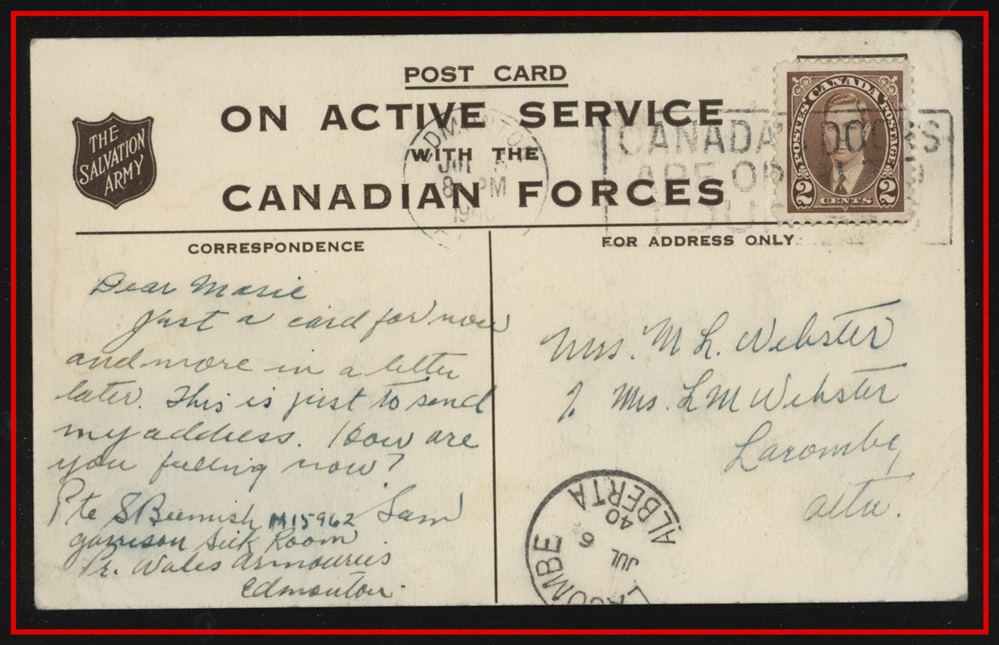 POST CARD
ON ACTIVE SERVICE
WITH THE
CANADIAN FORCES
THE
SALVATION
ARMY
EDMONTON
JUL 5
8 PM
1940
CANADA'S
ARE
POSTES CANADA POSTAGE
2 CENTS 2
CORRESPONDENCE
FOR ADDRESS ONLY
Dear Marie
Just a card for now
and more in a letter
later. This is just to send
my address. How are
you feeling now?
Sam
Pte S Beemish M15962
Garrison Sick Room
Pr. Wales Armouries
Edmonton.
Mrs. M L. Webster
% Mrs. L M Webster
Lacombe,
Alta.
LACOMBE
JUL 6 40
ALBERTA